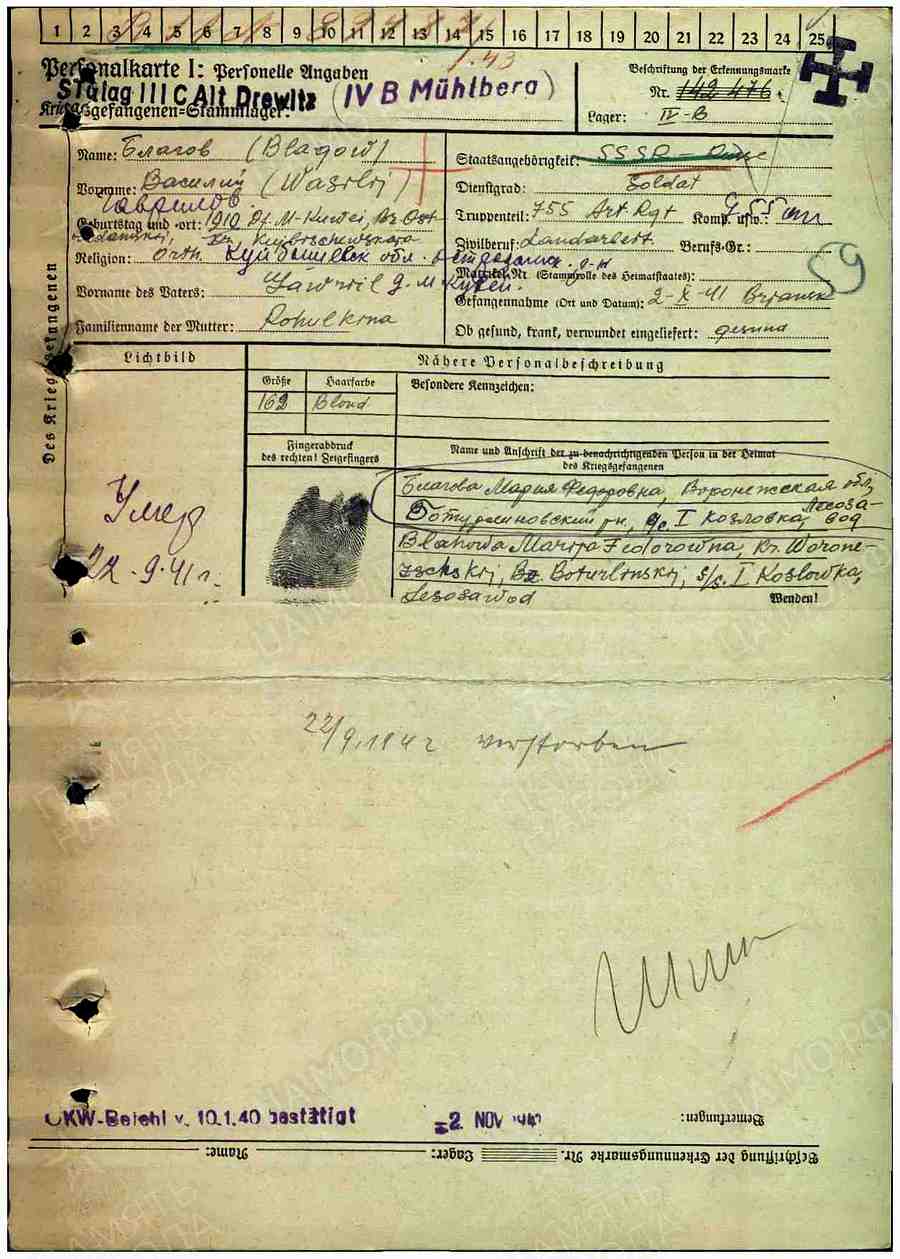 1 2 3 4 5 6 7 8 9 10 11 12 13 14 15 16 17 18 19 20 21 22 23 24 25
1.43
Personalkarte I: Personelle Angaben
Stalag III C Alt Drewitz (IV B Mühlberg)
Kriegsgefangenen-Stammlager:
Beschriftung der Erkennungsmarke
Nr. 142 476
Lager: IV-B
Name: Благов (Blagow)
Vorname: Василий (Wasilij)
Гаврилов.
Geburtstag und -ort: 1910
Religion: Orth. Куйбышевск обл.
Vorname des Vaters: Gawril д. М-Кувей.
Familienname der Mutter:
Staatsangehörigkeit: SSSR
Dienstgrad: Soldat
Truppenteil: 755 Art Rgt Komp. usw.:
Zivilberuf: Landarbeit Berufs-Gr.:
Matrikel Nr. (Stammrolle des Heimatstaates):
Gefangennahme (Ort und Datum): 2-X-41 Brjansk
Ob gesund, krank, verwundet eingeliefert: gesund
59
Des Kriegsgefangenen
Lichtbild
Nähere Personalbeschreibung
Größe Haarfarbe Besondere Kennzeichen:
162 Blond
Fingerabdruck
des rechten! Zeigefingers
Name und Anschrift der zu benachrichtigenden Person in der Heimat
des Kriegsgefangenen
Благова Мария Федоровна, Воронежская обл,
Ботурлиновский рн, с/с I Козловка, Лесоза-
вод
Blahowa Marija Fedorowna, Kr. Worone-
zschskij, Bz. Boturlinskij, s/s. I Koslowka,
Lesosawod
Wenden!
Умер
22.9.41г.
22/9.1942 verstorben
OKW-Befehl v. 10.1.40 bestätigt
-2. NOV 194
Bemerkungen:
Name: Lager: Beschriftung der Erkennungsmarke Nr.
ЦАМО.РФ
ПАМЯТЬ
НАРОДА